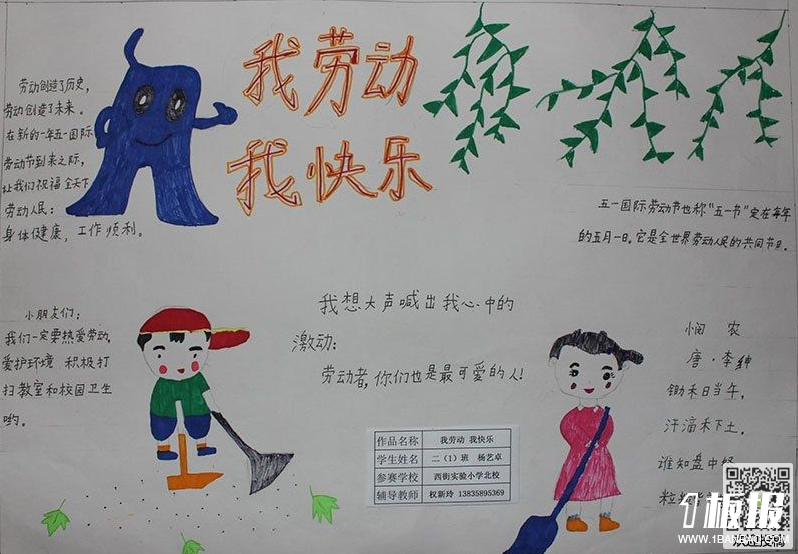 我劳动
我快乐
劳动创造了历史，
劳动创造了未来。
在新的一年五一国际
劳动节到来之际，
让我们祝福全天下
劳动人民：
身体健康，工作顺利。
五一国际劳动节也称“五一节”定在每年
的五月一日。它是全世界劳动人民的共同节日。
小朋友们：
我们一定要热爱劳动，
爱护环境 积极打
扫教室和校园卫生
哟。
我想大声喊出我心中的
激动：
劳动者，你们也是最可爱的人！
悯 农
唐·李绅
锄禾日当午，
汗滴禾下土。
谁知盘中
粒粒
作品名称 我劳动 我快乐
学生姓名 二（1）班 杨艺卓
参赛学校 西街实验小学北校
辅导教师 权新玲 13835895369
1板报
WWW.1BANBAO.COM
欢迎投稿